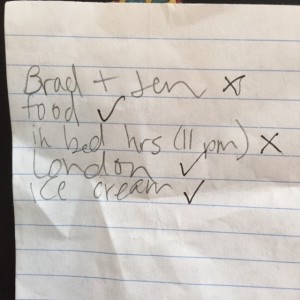 Brad + Jen ✗
food ✓
in bed hrs (11 pm) ✗
London ✓
ice cream ✓